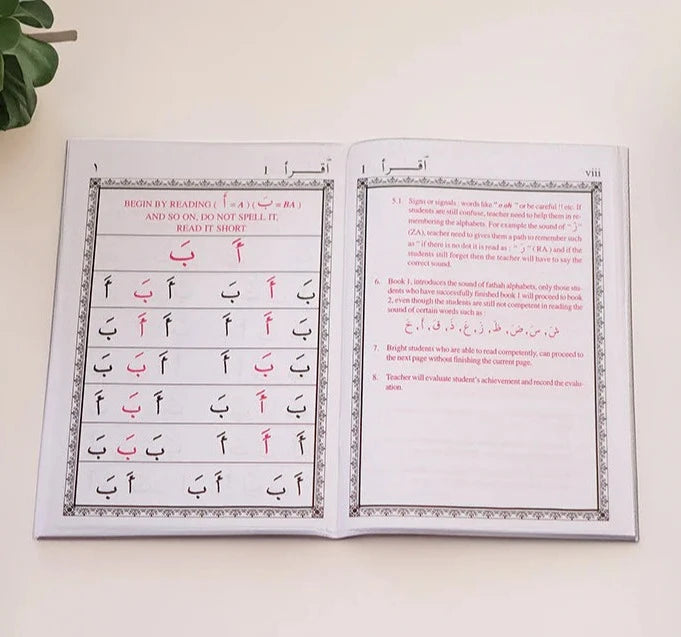 اقرأ 1 viii
5.1 Signs or signals , words like " o oh " or be careful !! etc. If
students are still confuse, teacher need to help them in re-
membering the alphabets. For example the sound of " زَ "
(ZA), teacher need to gives them a path to remember such
as " if there is no dot it is read as : " رَ " (RA) and if the
students still forget then the teacher will have to say the
correct sound.
6. Book 1, introduces the sound of fathah alphabets, only those stu-
dents who have successfully finished book 1 will proceed to book
2, even though the students are still not competent in reading the
sound of certain words such as :
شَ ، سَ ، ضَ ، ظَ ، زَ ، عَ ، ذَ ، قَ ، أَ ، خَ
7. Bright students who are able to read competently, can proceed to
the next page without finishing the current page.
8. Teacher will evaluate student's achievement and record the evalu-
ation.
١ اقرأ 1
BEGIN BY READING ( أَ = A ) ( بَ = BA )
AND SO ON, DO NOT SPELL IT,
READ IT SHORT
أَ بَ
بَ أَ بَ أَ بَ أَ
بَ أَ أَ أَ أَ بَ
بَ بَ أَ أَ بَ بَ
بَ أَ بَ أَ بَ أَ
أَ أَ أَ بَ بَ بَ
أَ بَ أَ بَ أَ بَ